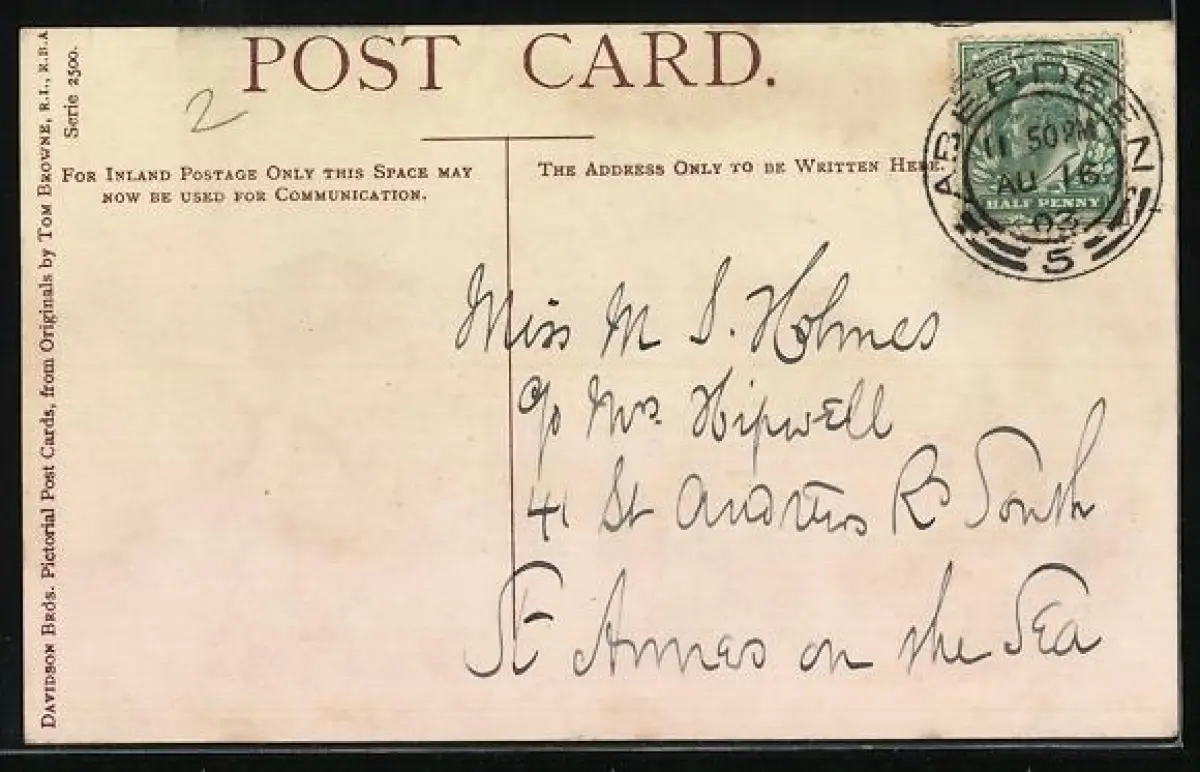 POST CARD.
2
FOR INLAND POSTAGE ONLY THIS SPACE MAY
NOW BE USED FOR COMMUNICATION.
THE ADDRESS ONLY TO BE WRITTEN HERE.
ABERDEEN
11 50 PM
AU 16
03
5
HALF PENNY
Miss M S. Holmes
c/o Mrs. Hipwell
41 St Andrews Rd South
St Annes on the Sea
DAVIDSON BROS. Pictorial Post Cards, from Originals by TOM BROWNE, R.I., R.B.A
Serie 2500.